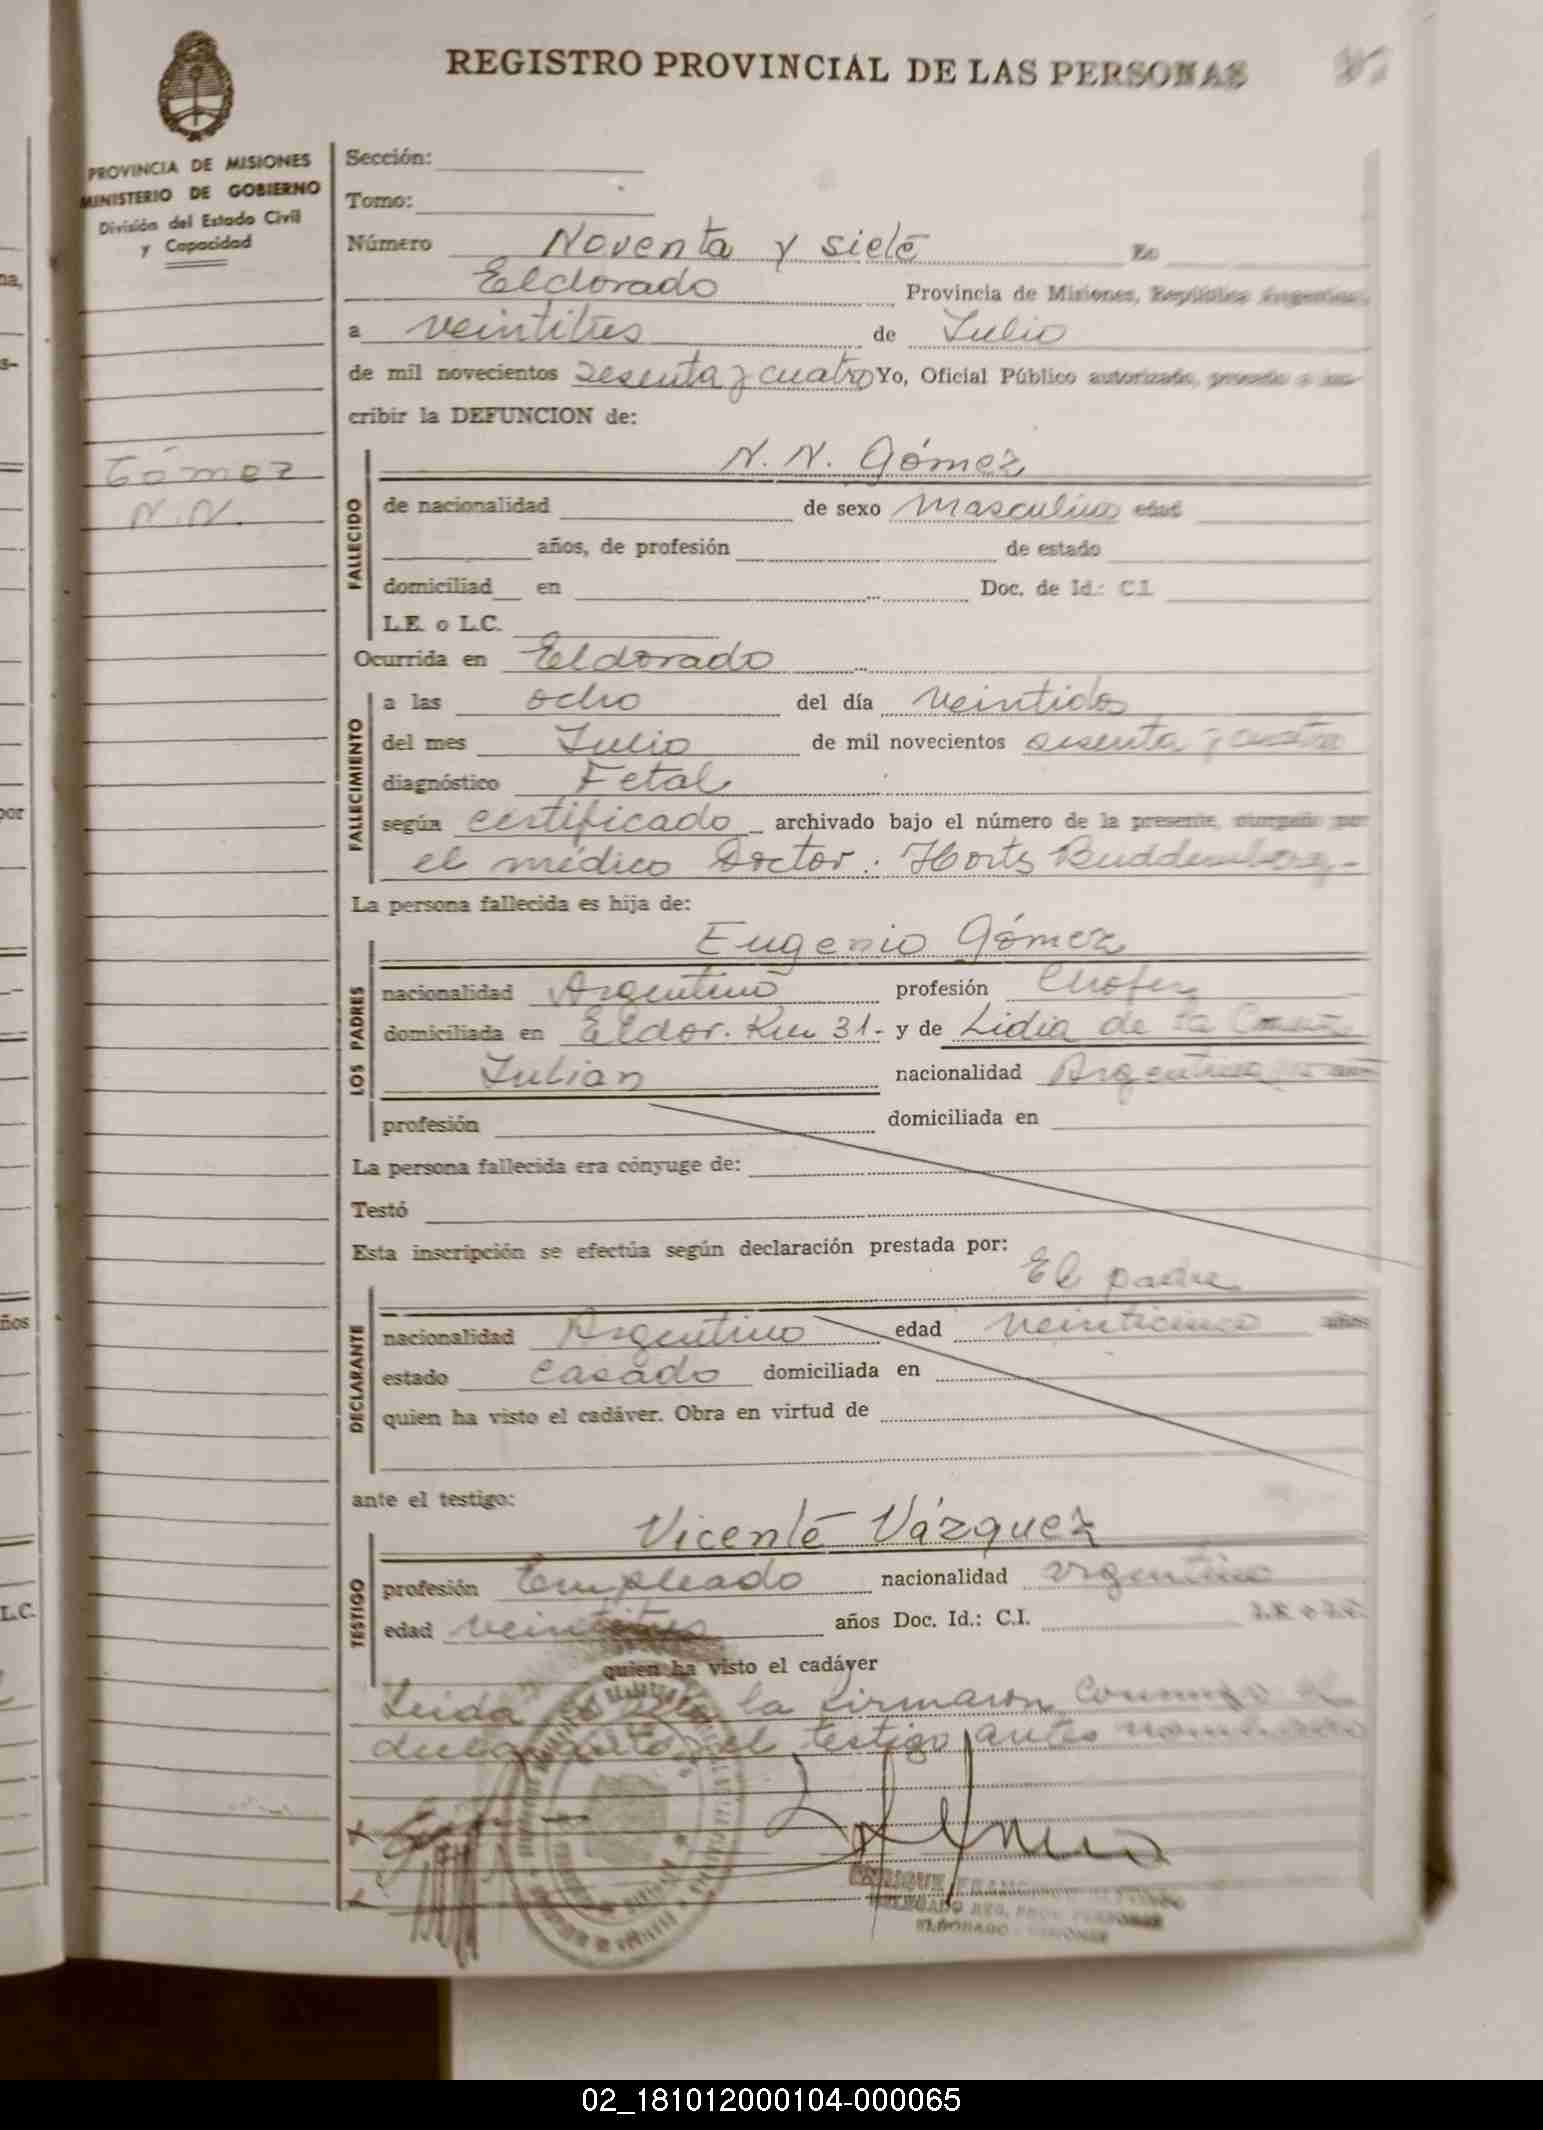 REGISTRO PROVINCIAL DE LAS PERSONAS
PROVINCIA DE MISIONES
MINISTERIO DE GOBIERNO
División del Estado Civil
y Capacidad
Gómez
N.N.
Sección:
Tomo:
Número Noventa y siete En
Eldorado Provincia de Misiones, República Argentina,
a veintitres de Julio
de mil novecientos sesenta y cuatro Yo, Oficial Público autorizado, procedo a ins-
cribir la DEFUNCION de:
N. N. Gómez
FALLECIDO
de nacionalidad de sexo Masculino edad
años, de profesión de estado
domiciliad en Doc. de Id.: C.I.
L.E. o L.C.
Ocurrida en Eldorado
FALLECIMIENTO
a las ocho del día veintidos
del mes Julio de mil novecientos sesenta y cuatro
diagnóstico Fetal
según certificado archivado bajo el número de la presente, otorgado por
el médico Doctor: Horts
La persona fallecida es hija de:
Eugenio Gómez
LOS PADRES
nacionalidad Argentino profesión Chofer
domiciliada en Eldor. Km 31- y de Lidia de la
Julian nacionalidad Argentina
profesión domiciliada en
La persona fallecida era cónyuge de:
Testó
Esta inscripción se efectúa según declaración prestada por:
El padre
DECLARANTE
nacionalidad Argentino edad veinticinco años
estado casado domiciliada en
quien ha visto el cadáver. Obra en virtud de
ante el testigo:
Vicente Vázquez
TESTIGO
profesión Empleado nacionalidad argentino
edad veintitres años Doc. Id.: C.I. L.E. o L.C.
quien ha visto el cadáver
Leida el acta la firmaron conmigo el
declarante y el testigo antes nombrado
ENRIQUE
DELEGADO REG. PROV. PERSONAS
ELDORADO - MISIONES
ños
L.C.
por
02_181012000104-000065